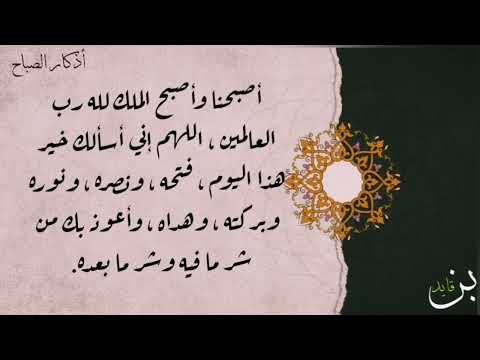 أذكار الصباح
أصبحنا وأصبح الملك لله رب
العالمين ، اللهم إني أسألك خير
هذا اليوم ، فتحه ، ونصره ، ونوره
وبركته ، وهداه ، وأعوذ بك من
شر ما فيه وشر ما بعده.
بن قايد